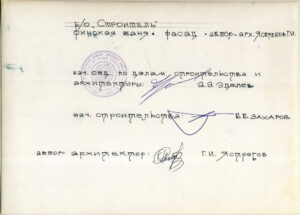 б/о „Строитель"
финская баня • фасад • автор-арх. Ястребов Г.И.
нач. отд. по делам строительства и
архитектуры:
нач. строительства В.Е. Захаров
автор архитектор: Г.И. Ястребов